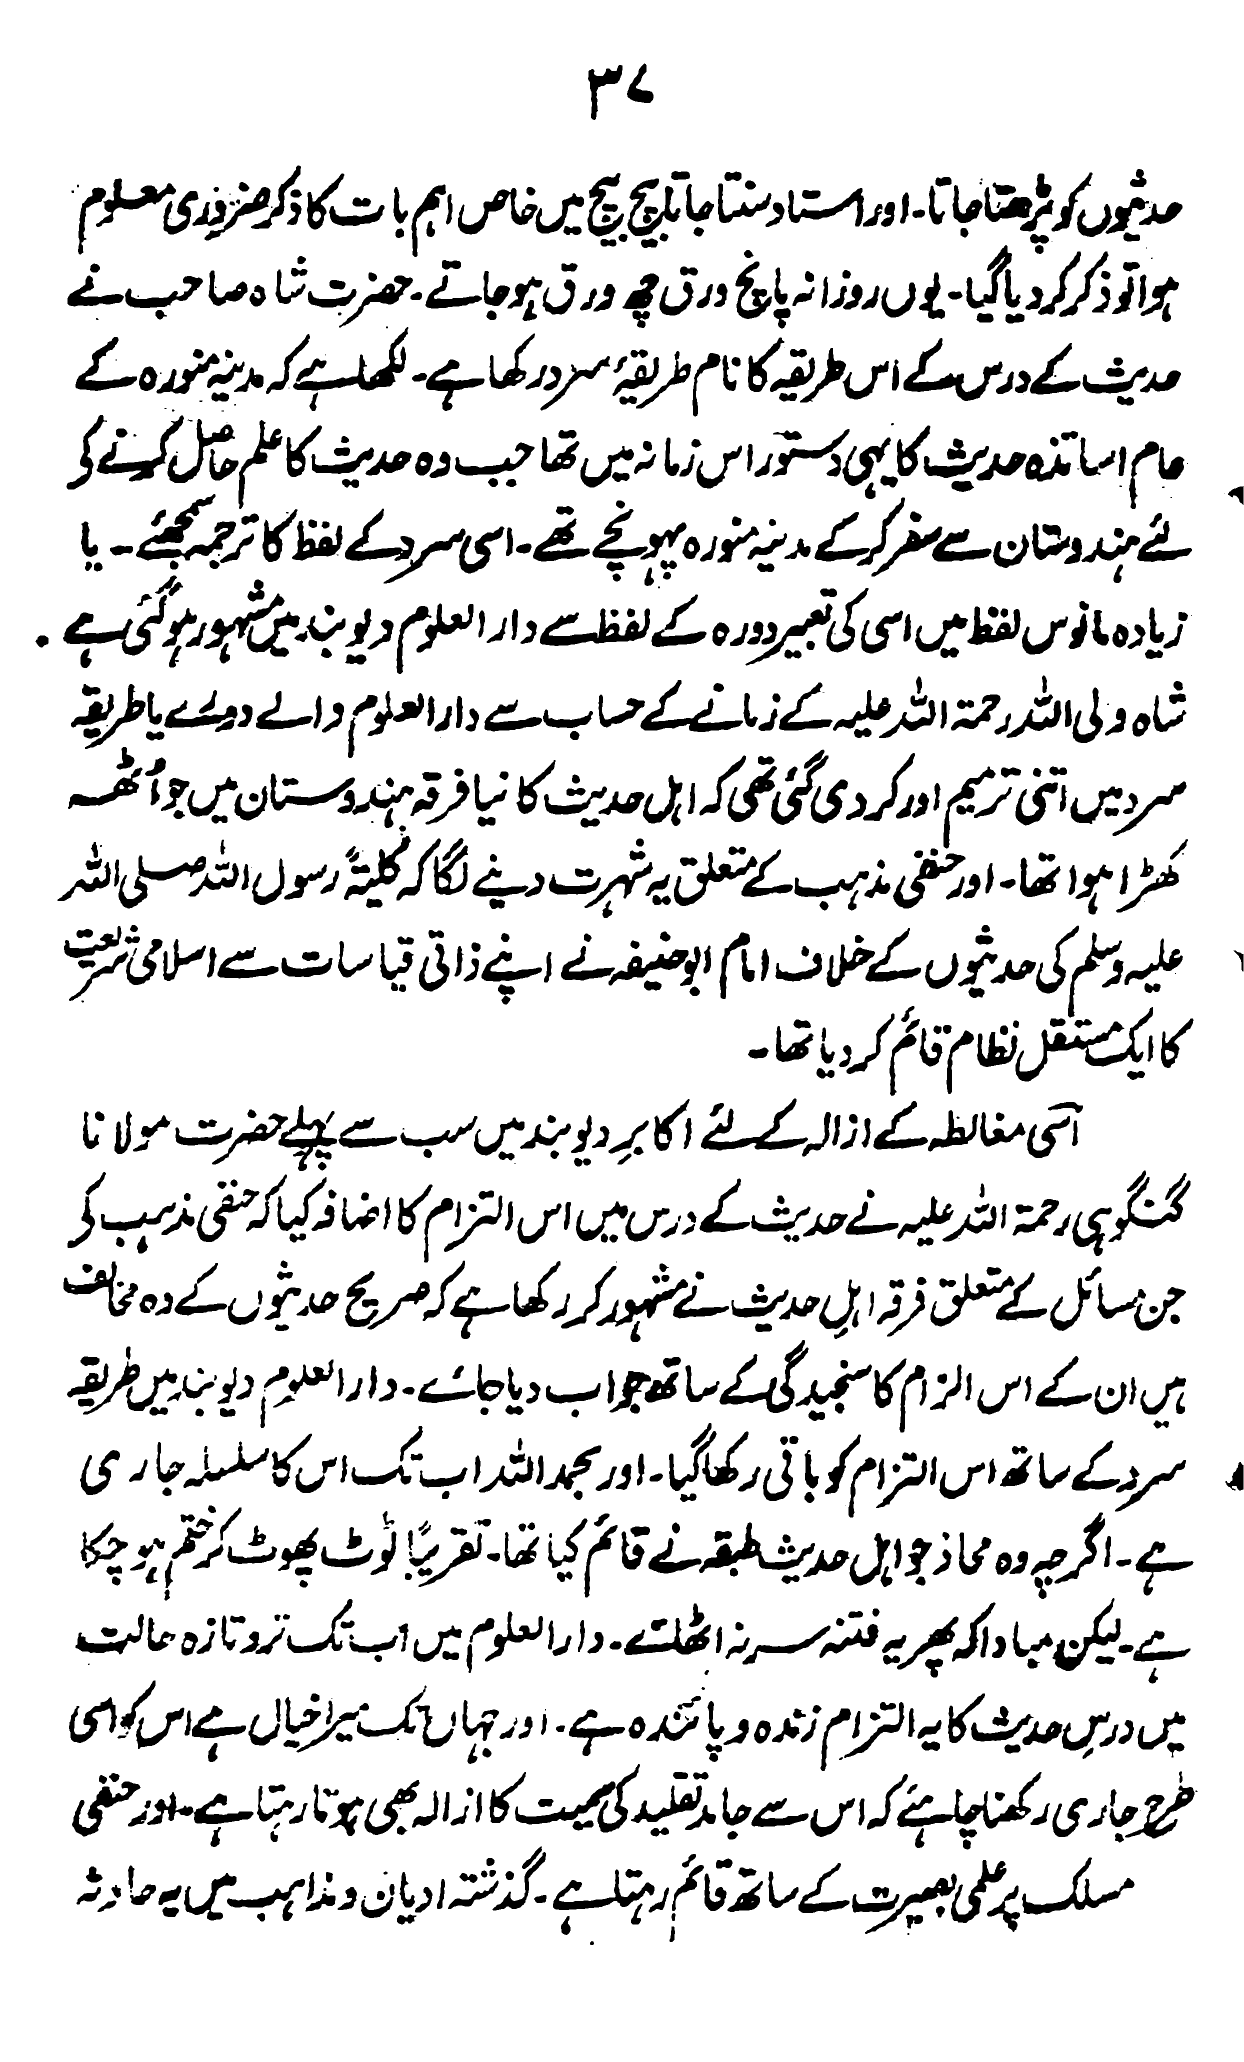 ۳۷
حدیثوں کو پڑھتا جاتا۔ اور استاد سنتا جاتا بیچ بیچ میں خاص اہم بات کا ذکر ضروری معلوم
ہوا تو ذکر کر دیا گیا۔ یوں روزانہ پانچ ورق چھ ورق ہو جاتے۔ حضرت شاہ صاحب نے
حدیث کے درس کے اس طریقہ کا نام طریقۂ سرد رکھا ہے۔ لکھا ہے کہ مدینہ منورہ کے
عام اساتذہ حدیث کا یہی دستور اس زمانہ میں تھا جب وہ حدیث کا علم حاصل کرنے کی
لئے ہندوستان سے سفر کر کے مدینہ منورہ پہونچے تھے۔ اسی سرد کے لفظ کا ترجمہ سمجھئے۔ یا
زیادہ مانوس لفظ میں اسی کی تعبیر دورہ کے لفظ سے دارالعلوم دیوبند میں مشہور ہو گئی ہے۔
شاہ ولی اللہ رحمۃ اللہ علیہ کے زمانے کے حساب سے دارالعلوم والے دورے یا طریقہ
سرد میں اتنی ترمیم اور کر دی گئی تھی کہ اہل حدیث کا نیا فرقہ ہندوستان میں جو اُٹھ
کھڑا ہوا تھا۔ اور حنفی مذہب کے متعلق یہ شہرت دینے لگا کہ کلیۃً رسول اللہ صلی اللہ
علیہ وسلم کی حدیثوں کے خلاف امام ابوحنیفہ نے اپنے ذاتی قیاسات سے اسلامی شریعت
کا ایک مستقل نظام قائم کر دیا تھا۔
اسی مغالطہ کے ازالہ کے لئے اکابرِ دیوبند میں سب سے پہلے حضرت مولانا
گنگوہی رحمۃ اللہ علیہ نے حدیث کے درس میں اس التزام کا اضافہ کیا کہ حنفی مذہب کی
جن مسائل کے متعلق فرقہ اہلِ حدیث نے مشہور کر رکھا ہے کہ صریح حدیثوں کے وہ مخالف
ہیں ان کے اس الزام کا سنجیدگی کے ساتھ جواب دیا جائے۔ دارالعلوم دیوبند میں طریقہ
سرد کے ساتھ اس التزام کو باقی رکھا گیا۔ اور بحمد اللہ اب تک اس کا سلسلہ جاری
ہے۔ اگرچہ وہ محاذ جو اہل حدیث طبقہ نے قائم کیا تھا۔ تقریبًا ٹوٹ پھوٹ کر ختم ہو چکا
ہے۔ لیکن مبادا کہ پھر یہ فتنہ سر نہ اٹھائے۔ دارالعلوم میں اب تک تروتازہ حالت
میں درسِ حدیث کا یہ التزام زندہ و پائندہ ہے۔ اور جہاں تک میرا خیال ہے اس کو اسی
طرح جاری رکھنا چاہئے کہ اس سے جامد تقلید کی سمیت کا ازالہ بھی ہوتا رہتا ہے۔ اور حنفی
مسلک پر علمی بصیرت کے ساتھ قائم رہتا ہے۔ گذشتہ ادیان و مذاہب میں یہ حادثہ